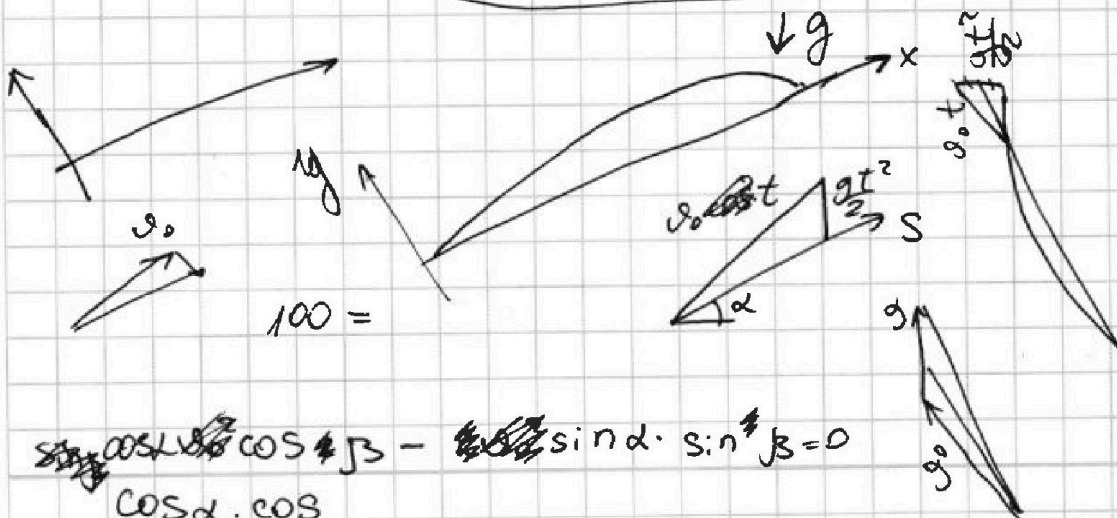 g
x
y
gt²/2
ϑ₀ t
ϑ₀ t
gt²/2
S
ϑ₀
α
100 =
ϑ₀
cosα cos β - sinα · sin β = 0
cosα · cos